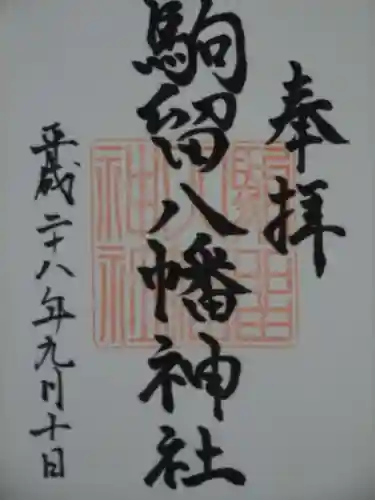 奉拝
駒留八幡神社
平成二十八年九月十日